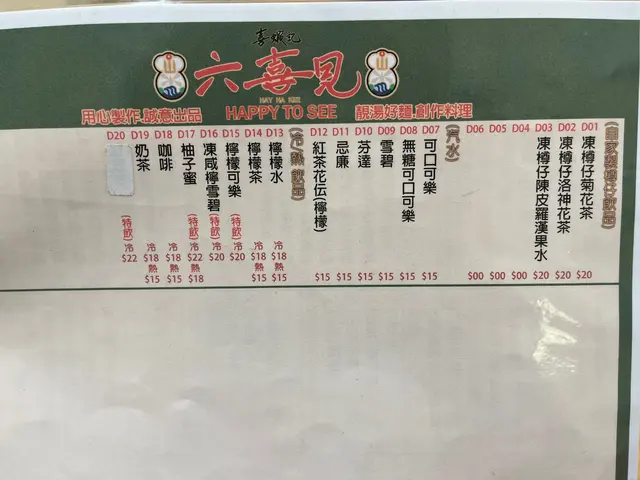 六喜見
HAY HA KEE
HAPPY TO SEE
用心製作.誠意出品
靚湯好麵.創作料理
(自家製樽仔飲品)
D01 凍樽仔菊花茶 $20
D02 凍樽仔洛神花茶 $20
D03 凍樽仔陳皮羅漢果水 $20
D04 $00
D05 $00
D06 $00
(汽水)
D07 可口可樂 $15
D08 無糖可口可樂 $15
D09 雪碧 $15
D10 芬達 $15
D11 忌廉 $15
D12 紅茶花伝(檸檬) $15
(冷/熱飲品)
D13 檸檬水 冷 $18 熱 $15
D14 檸檬茶 冷 $18 熱 $15
D15 檸檬可樂 (特飲) 冷 $20
D16 凍咸檸雪碧 (特飲) 冷 $20
D17 柚子蜜 (特飲) 冷 $22 熱 $18
D18 咖啡 冷 $18 熱 $15
D19 奶茶 冷 $18 熱 $15
D20 (特飲) 冷 $22